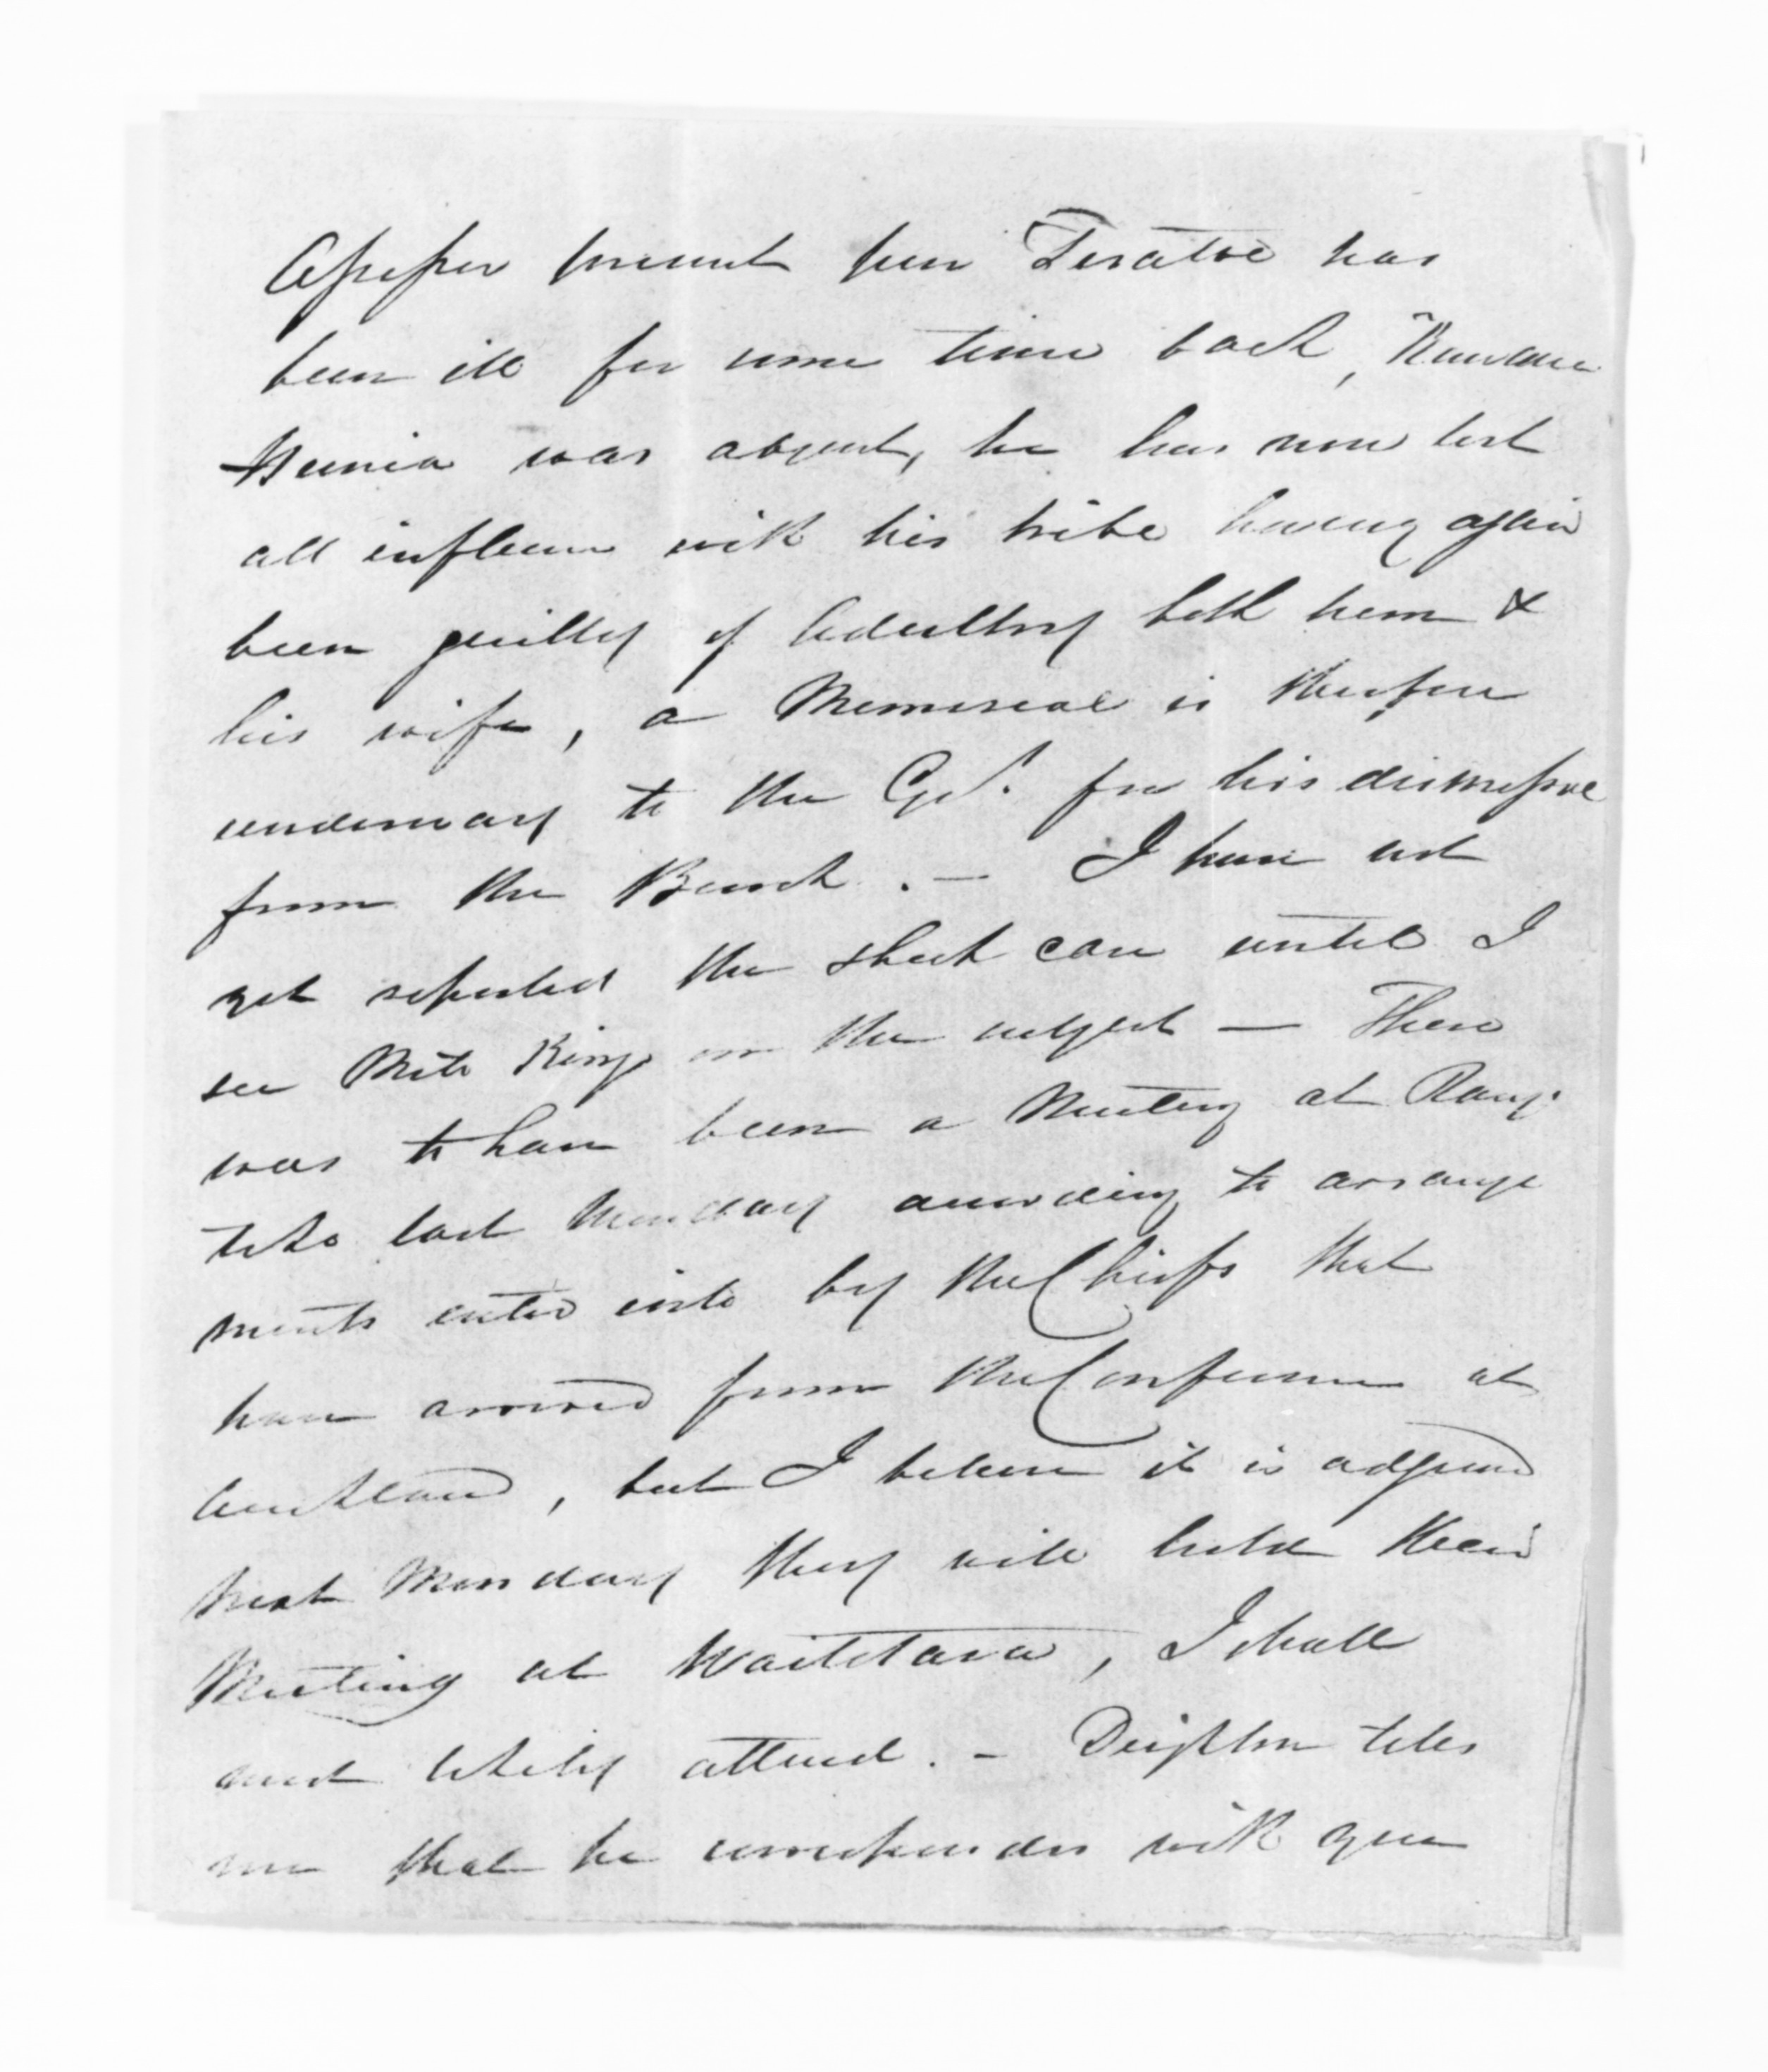 Assessor present poor Teratoe has
been ill for some time back, Kawana
Hunia was absent, he has now lost
all influence with his tribe having again
been guilty of Adultery both him &
his wife, a Memorial is therefore
underway to the Govt. for his dismissal
from the Bench. — I have not
yet reported the case until I
see Mete King on the subject — There
was to have been a Meeting at Rangi
last Monday according to arrange
ments enter into by the Chiefs that
have arrived from the Conference at
Auckland, but I believe it is adjourned
next Monday they will hold their
Meeting at Waitotara, I shall
most likely attend. — Deighton tells
me that he corresponds with you